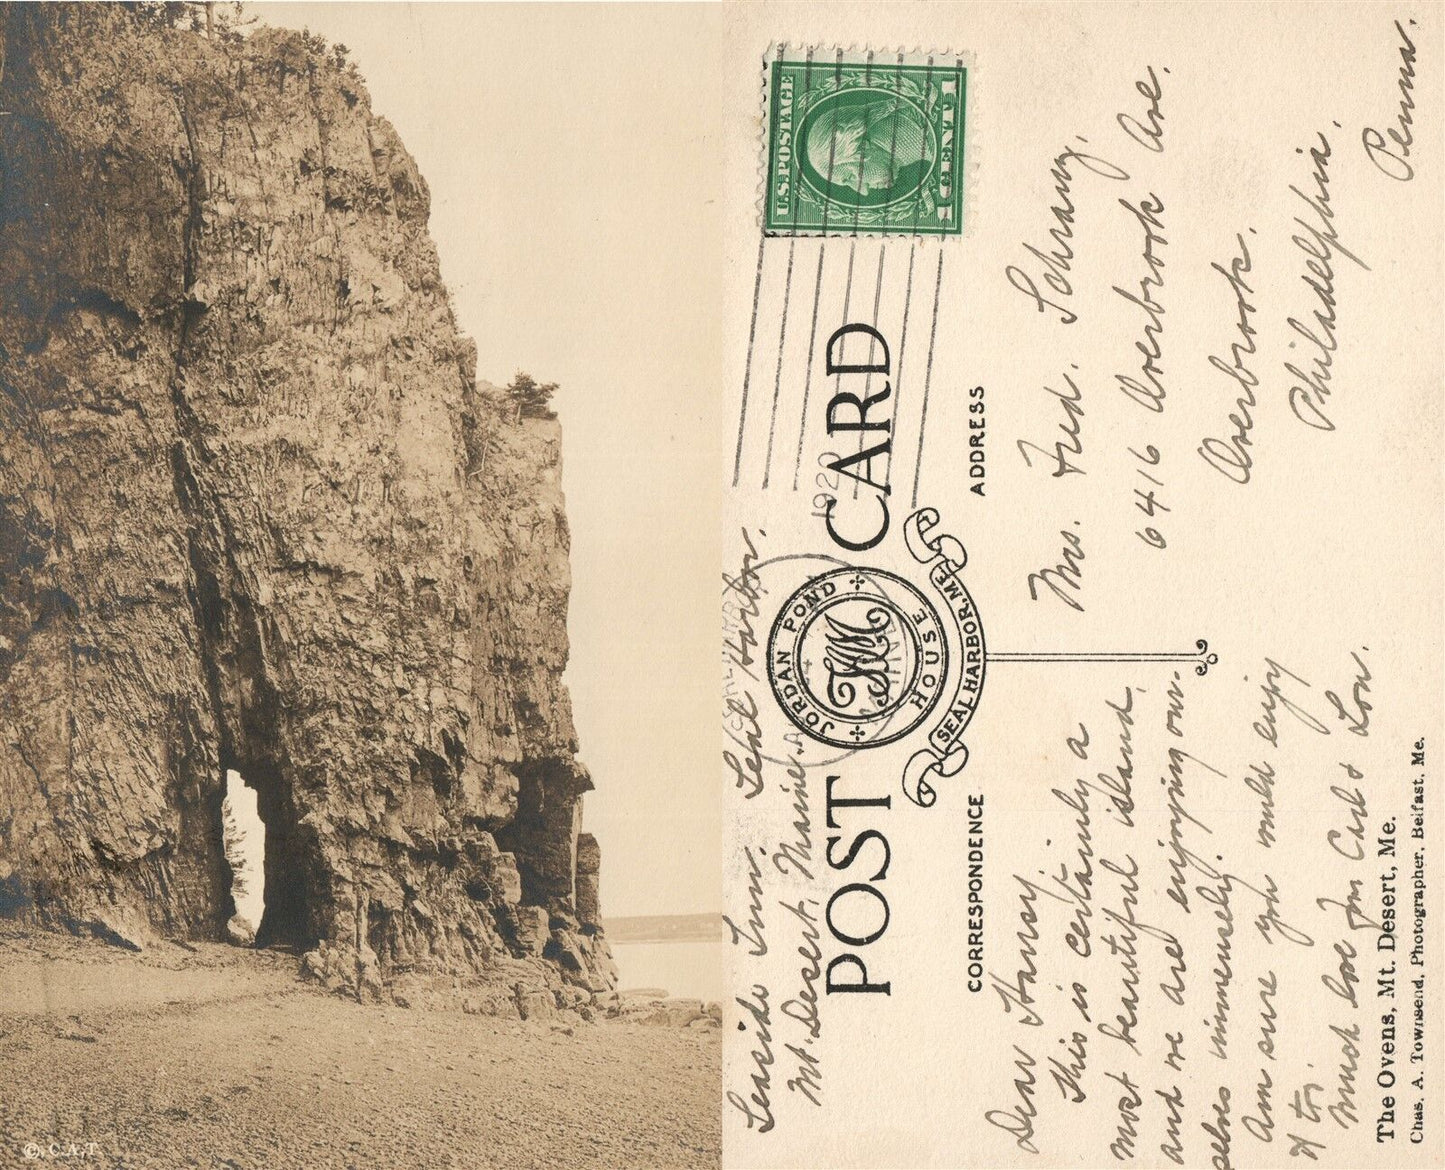 © C.A.T.
Seaside Inn. Seal Harbor.
Mt. Desert, Maine.
U.S. POSTAGE
1 CENT 1
1920
POST CARD
JORDAN POND
HOUSE
SEAL HARBOR, ME
CORRESPONDENCE
ADDRESS
Dear
This is certainly a
most beautiful island,
and we are enjoying our-
selves immensely.
Am sure you would enjoy
it to.
Much love from Carl & Lou.
Mrs. Fred. Schrany.
6416 Overbrook Ave.
Overbrook.
Philadelphia.
Penna.
The Ovens, Mt. Desert, Me.
Chas. A. Townsend, Photographer, Belfast, Me.